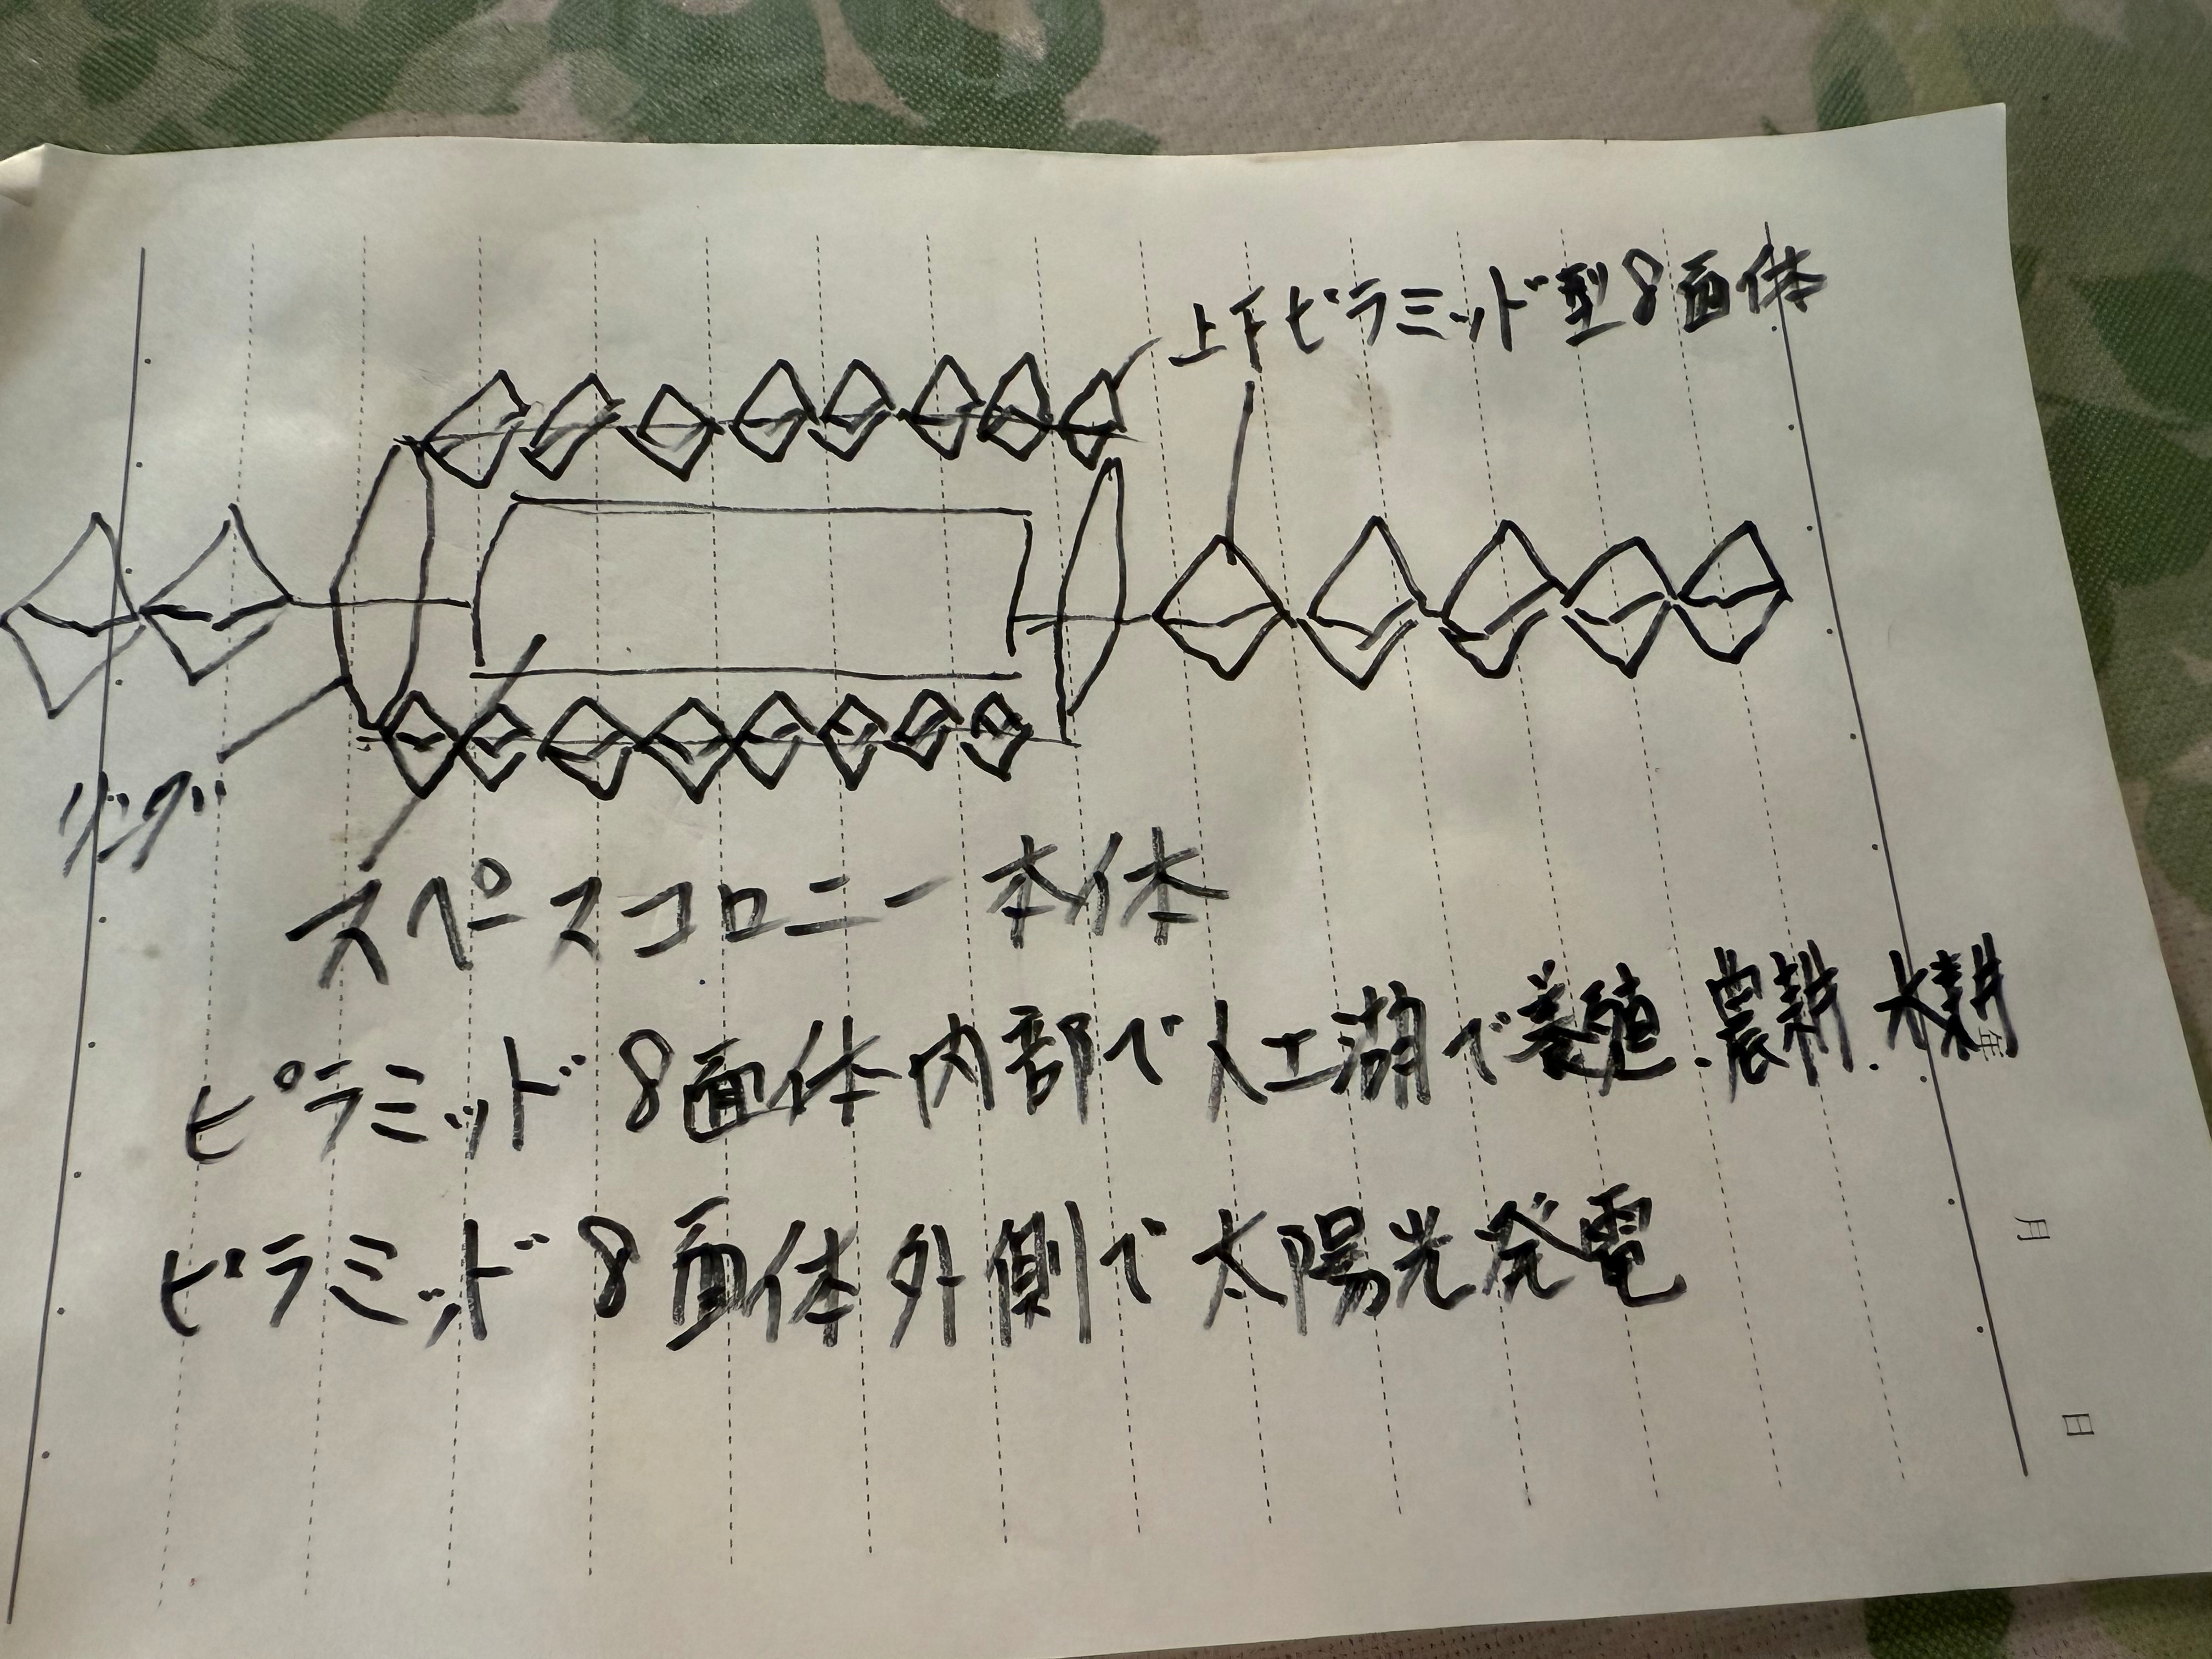 上下ピラミッド型8面体
リング
スペースコロニー本体
ピラミッド8面体内部で人工湖で養殖.農耕.水耕
年
ピラミッド8面体外側で太陽光発電
月
日